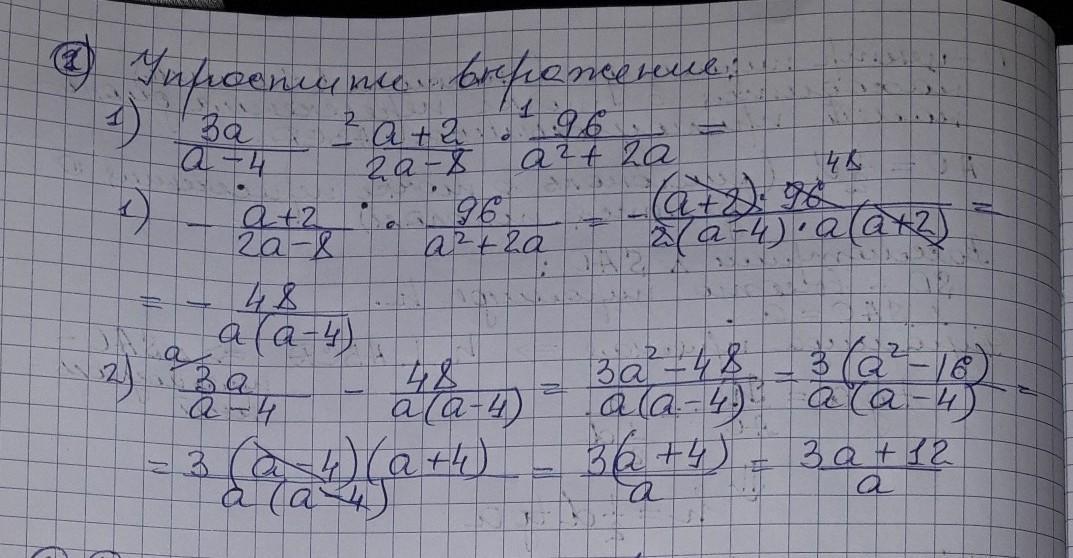 ① Упростите выражение:
1) 3a/(a-4) -² (a+2)/(2a-8) ·¹ 96/(a²+2a) =
1) - (a+2)/(2a-8) · 96/(a²+2a) = - ((a+2)·96 48)/(2(a-4)·a(a+2)) =
= - 48/(a(a-4))
2) 3a/(a-4) ᵃ - 48/(a(a-4)) = (3a²-48)/(a(a-4)) = 3(a²-16)/(a(a-4)) =
= 3(a-4)(a+4)/(a(a-4)) = 3(a+4)/a = (3a+12)/a